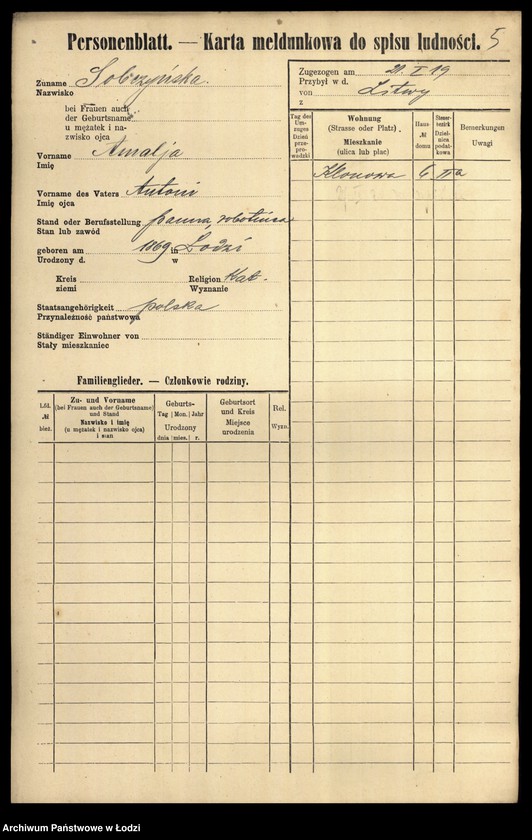 Personenblatt. — Karta meldunkowa do spisu ludności. 5
Zuname Sobczyńska.
Nazwisko
bei Frauen auch
der Geburtsname
u mężatek i na-
zwisko ojca
Vorname Amalja
Imię
Vorname des Vaters Antoni
Imię ojca
Stand oder Berufsstellung panna, robotnica
Stan lub zawód
geboren am 1869 in Łodzi
Urodzony d. w
Kreis Religion Kat.
ziemi Wyznanie
Staatsangehörigkeit polska
Przynależność państwowa
Ständiger Einwohner von
Stały mieszkaniec
Zugezogen am 21. I 19
Przybył w d.
von Litwy
z
Tag des Um-zuges
Dzień prze-pro-wadzki
Wohnung
(Strasse oder Platz)
Mieszkanie
(ulica lub plac)
Haus-
№
domu
Steuer-bezirk
Dziel-nica podat-kowa
Bemerkungen
Uwagi
Klonowa 6 IIa
Familienglieder. — Członkowie rodziny.
Lfd.
№
bież.
Zu- und Vorname
(bei Frauen auch der Geburtsname)
und Stand
Nazwisko i imię
(u mężatek i nazwisko ojca)
i stan
Geburts-
Tag Mon. Jahr
Urodzony
dnia mies. r.
Geburtsort
und Kreis
Miejsce
urodzenia
Rel.
Wyzn.
Archiwum Państwowe w Łodzi